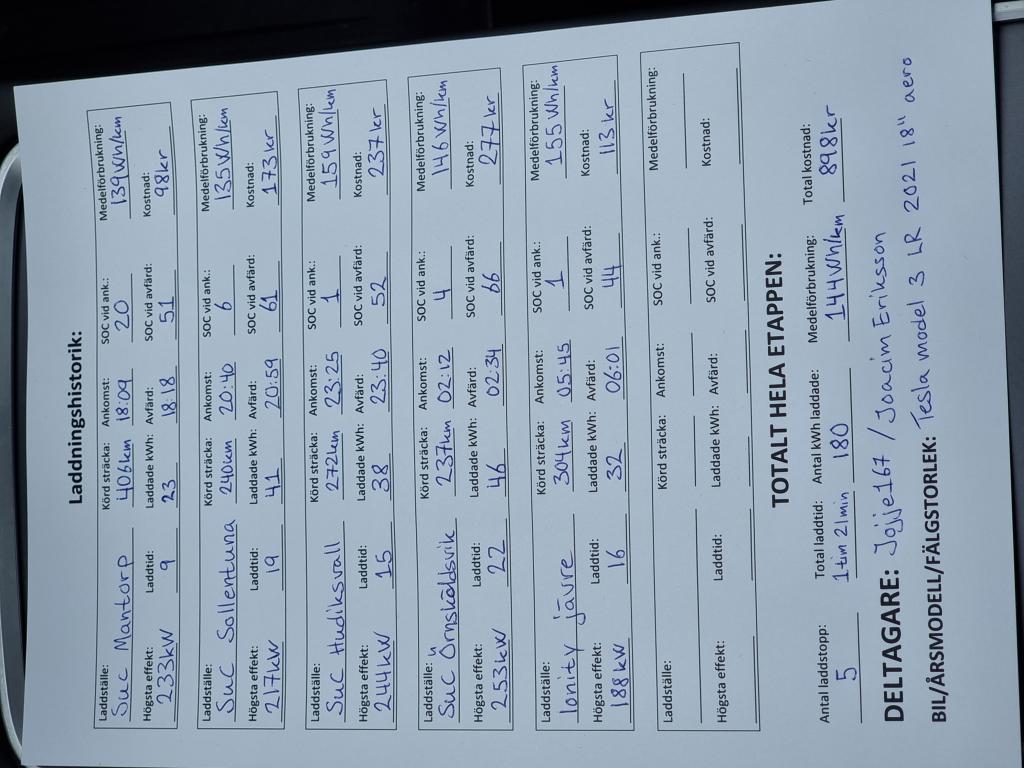 Laddningshistorik:
Laddställe: Körd sträcka: Ankomst: SOC vid ank.: Medelförbrukning:
SuC Mantorp 406km 18:09 20 139Wh/km
Högsta effekt: Laddtid: Laddade kWh: Avfärd: SOC vid avfärd: Kostnad:
233kW 9 23 18:18 51 98kr
Laddställe: Körd sträcka: Ankomst: SOC vid ank.: Medelförbrukning:
SuC Sollentuna 240km 20:40 6 135Wh/km
Högsta effekt: Laddtid: Laddade kWh: Avfärd: SOC vid avfärd: Kostnad:
217kW 19 41 20:59 61 173kr
Laddställe: Körd sträcka: Ankomst: SOC vid ank.: Medelförbrukning:
SuC Hudiksvall 272km 23:25 1 159Wh/km
Högsta effekt: Laddtid: Laddade kWh: Avfärd: SOC vid avfärd: Kostnad:
244kW 15 38 23:40 52 237kr
Laddställe: Körd sträcka: Ankomst: SOC vid ank.: Medelförbrukning:
SuC Örnsköldsvik 237km 02:12 4 146Wh/km
Högsta effekt: Laddtid: Laddade kWh: Avfärd: SOC vid avfärd: Kostnad:
253kW 22 46 02:34 66 277kr
Laddställe: Körd sträcka: Ankomst: SOC vid ank.: Medelförbrukning:
Ionity jävre 304km 05:45 1 155Wh/km
Högsta effekt: Laddtid: Laddade kWh: Avfärd: SOC vid avfärd: Kostnad:
188kW 16 32 06:01 44 113kr
Laddställe: Körd sträcka: Ankomst: SOC vid ank.: Medelförbrukning:
Högsta effekt: Laddtid: Laddade kWh: Avfärd: SOC vid avfärd: Kostnad:
TOTALT HELA ETAPPEN:
Antal laddstopp: Total laddtid: Antal kWh laddade: Medelförbrukning: Total kostnad:
5 1tim 21min 180 144Wh/km 898kr
DELTAGARE: Jojje167 / Joacim Eriksson
BIL/ÅRSMODELL/FÄLGSTORLEK: Tesla model 3 LR 2021 18" aero